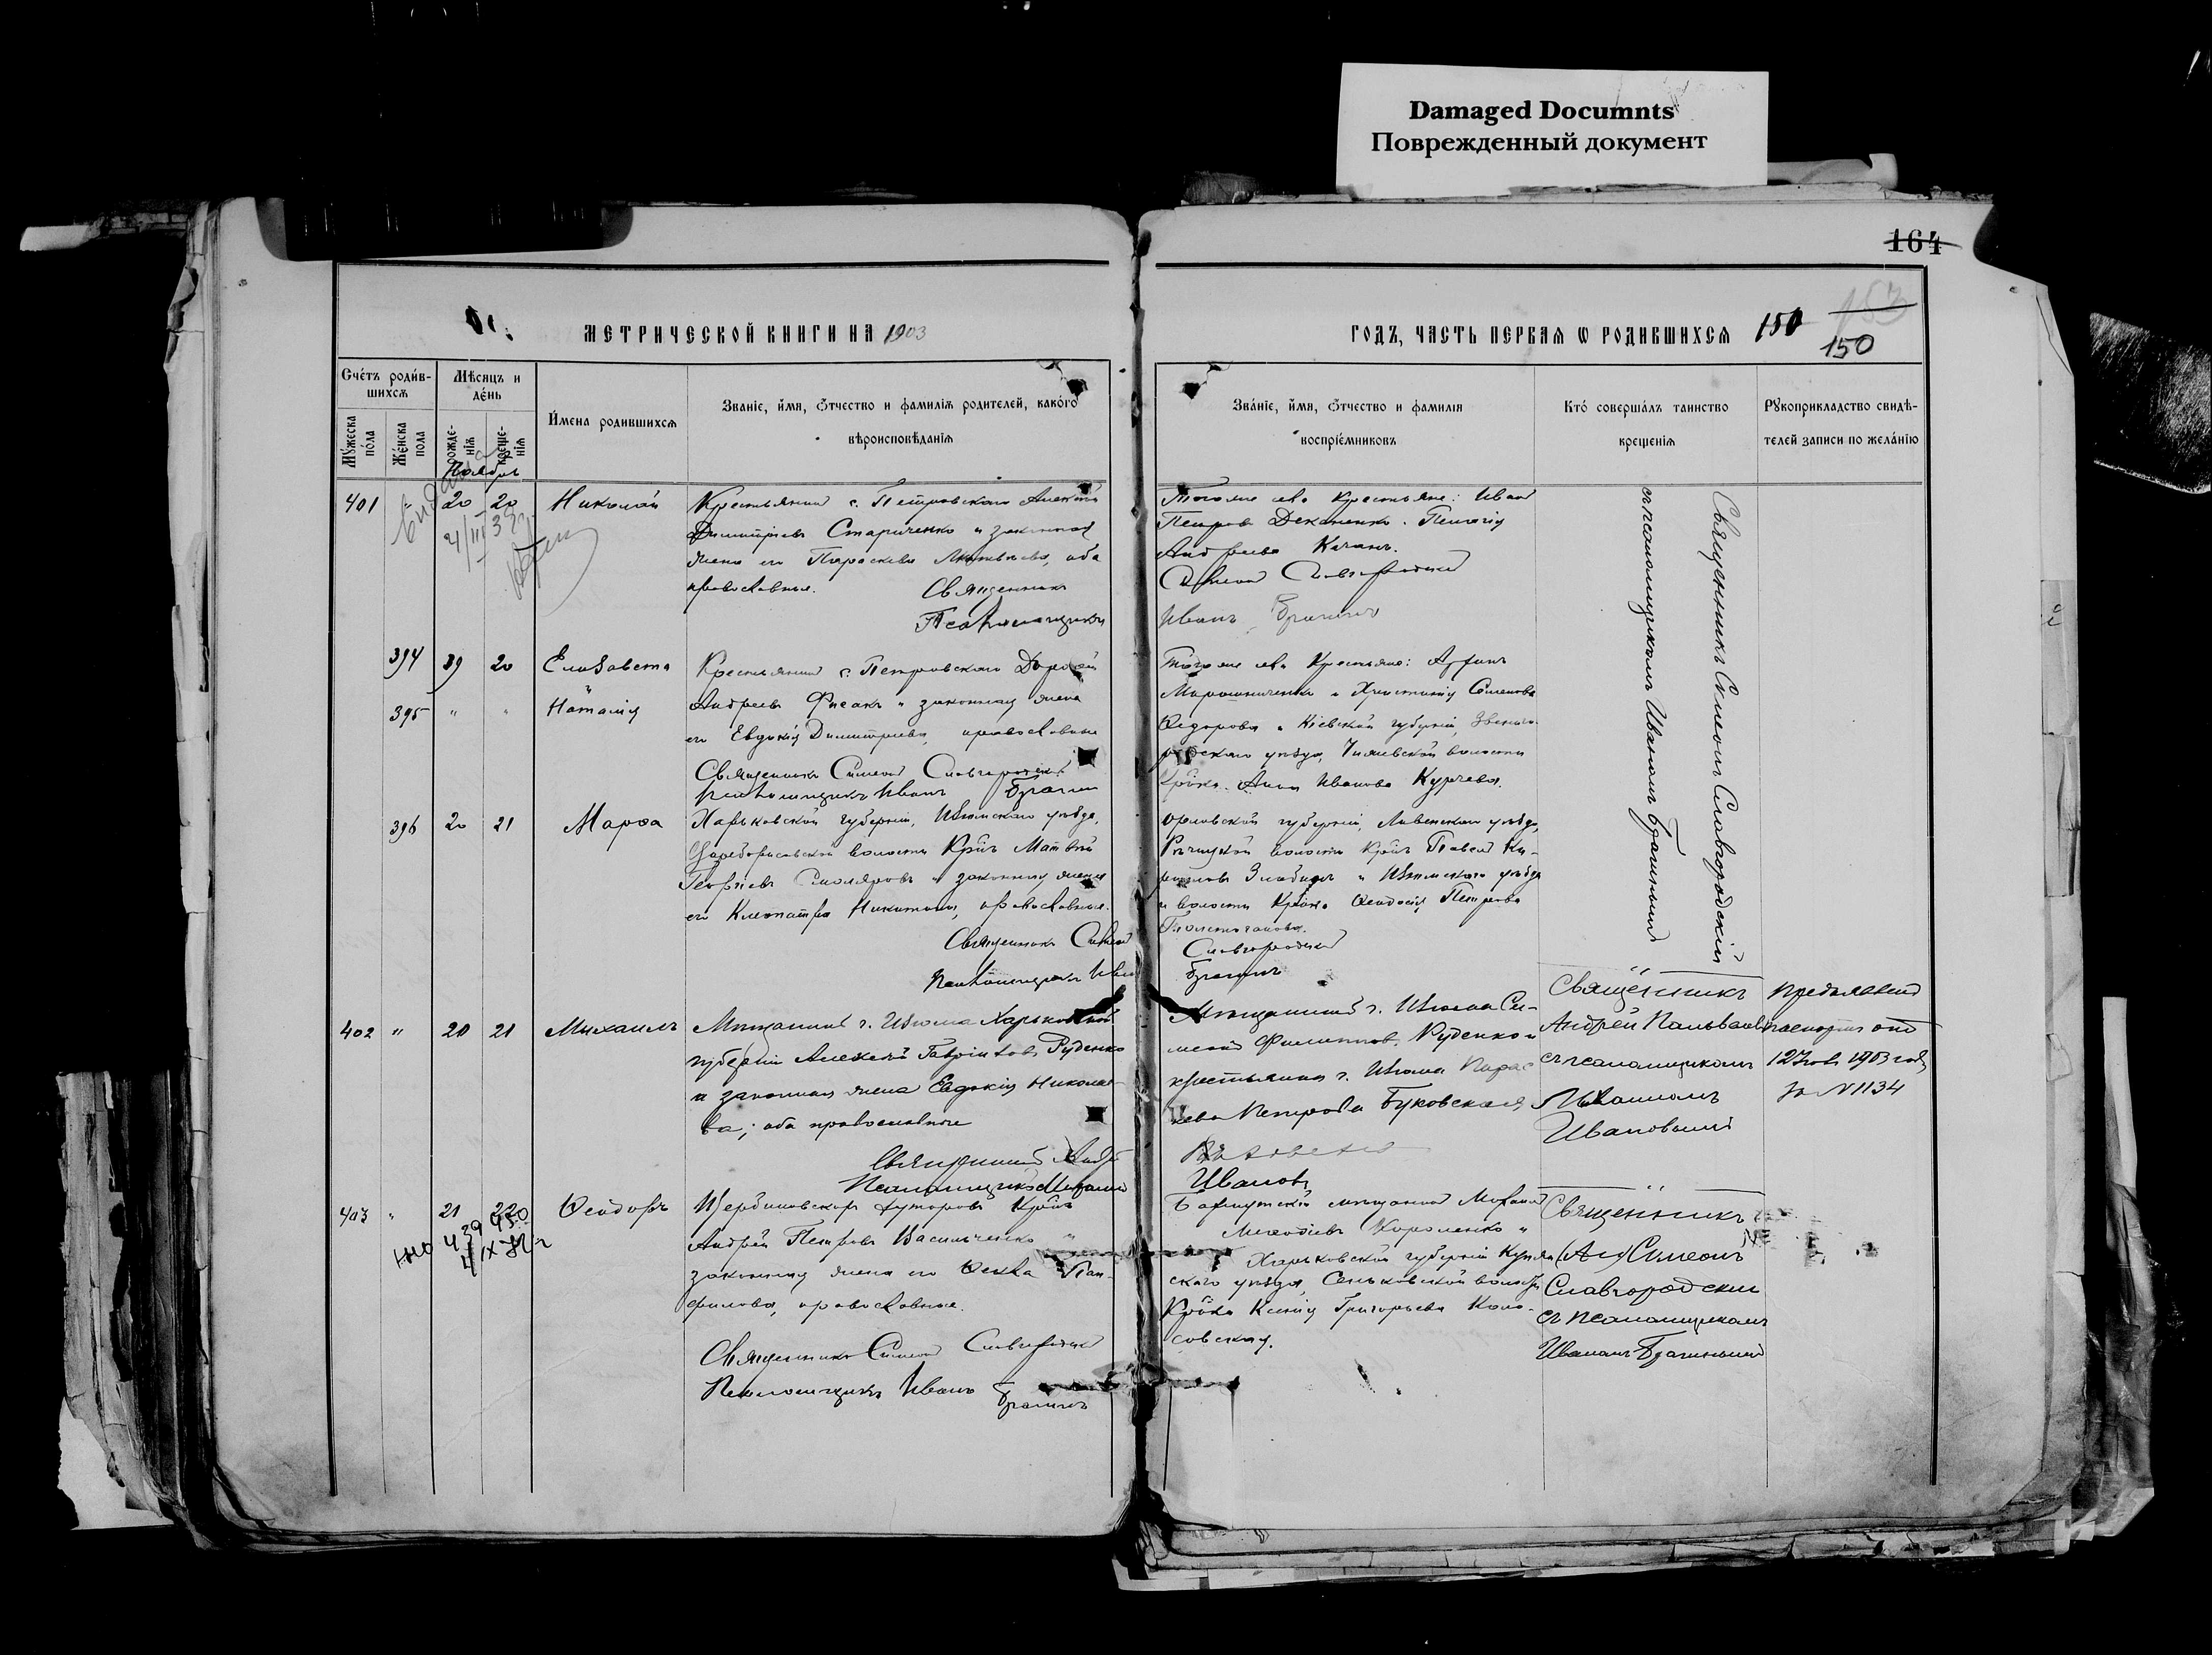 Damaged Documnts
Поврежденный документ
164
МЕТРИЧЕСКОЙ КНИГИ НА 1903
ГОДЪ, ЧАСТЬ ПЕРВАЯ Ѡ РОДИВШИХСЯ 150
150
Счетъ родив-
шихся
Мѣсяцъ и
день
Мужеска
пола
Женска
пола
рожде-
нія
креще-
нія
Имена родившихся
Званіе, имя, ѿчество и фамилія родителей, какого
вѣроисповѣданія
Званіе, имя, ѿчество и фамилія
воспріемниковъ
Кто совершалъ таинство
крещенія
Рукоприкладство свидѣ-
телей записи по желанію
Ноябрь
401 20 20 Николай
Крестьянинъ с. Петровскаго Алексѣй
Димитріевъ Стариченко и законная
жена его Параскева Матвѣева, оба
православные.
Священникъ
Псаломщикъ
Того же села крестьяне: Иванъ
Петровъ Деканенко. Пелагія
Андреева Качанъ.
Симеонъ Славгородскій
Иванъ Брагинъ
Священникъ Симеонъ Славгородскій
съ псаломщикомъ Иваномъ Брагинымъ
394 20 Елизавета
395 " " Наталія
Крестьянинъ с. Петровскаго Дорофей
Андреевъ Фисакъ и законная жена
его Евдокія Димитріева, православные
Священникъ Симеонъ Славгородскій
Псаломщикъ Иванъ Брагинъ
Того же села крестьяне:
Мирошниченко и Христинія Семенова
Федорова и Кіевской губерніи, Звениго-
родскаго уѣзда, волости
Анна Иванова
396 20 21 Марѳа
Харьковской губерніи, Изюмскаго уѣзда,
Цареборисовской волости Кр-нъ Матвѣй
Георгіевъ Смоляровъ и законная жена
его Клеопатра Никитина, православные.
Священникъ Симеонъ
Псаломщикъ Иванъ
Орловской губерніи, Ливенскаго уѣзда,
Рѣчицкой волости Кр-нъ Павелъ Ки-
рилловъ и Изюмскаго уѣзда
и волости Кр-нка Ѳеодосія Петрова
Славгородскій
Брагинъ
402 " 20 21 Михаилъ
Мѣщанинъ г. Изюма Харьковской
губерніи Алексѣй Гавріиловъ Руденко
и законная жена Евдокія Николае-
ва; оба православные
Священникъ Андрей
Псаломщикъ Михаилъ
Мѣщанинъ г. Изюма Си-
меонъ Филипповъ Руденко и
крестьянка г. Изюма Парас-
кева Петрова Буковская
Ивановъ
Священникъ
Андрей
съ псаломщикомъ
Михаиломъ
Ивановымъ
Предъявленъ
паспортъ отъ
1903 года
за N 1134
403 " 21 22 Ѳеодоръ
Щербиновскихъ хуторовъ Кр-нъ
Андрей Петровъ Васильченко и
законная жена его Ѳекла Пан-
филова, православные.
Священникъ Симеонъ Славгородскій
Псаломщикъ Иванъ Брагинъ
Бахмутскій мѣщанинъ Михаилъ
Меѳодіевъ Короленко и
Харьковской губерніи Купян-
скаго уѣзда, Сеньковской волости
Кр-нка Ксенія Григорьева Коло-
совская.
Священникъ
Симеонъ
Славгородскій
съ псаломщикомъ
Иваномъ Брагинымъ